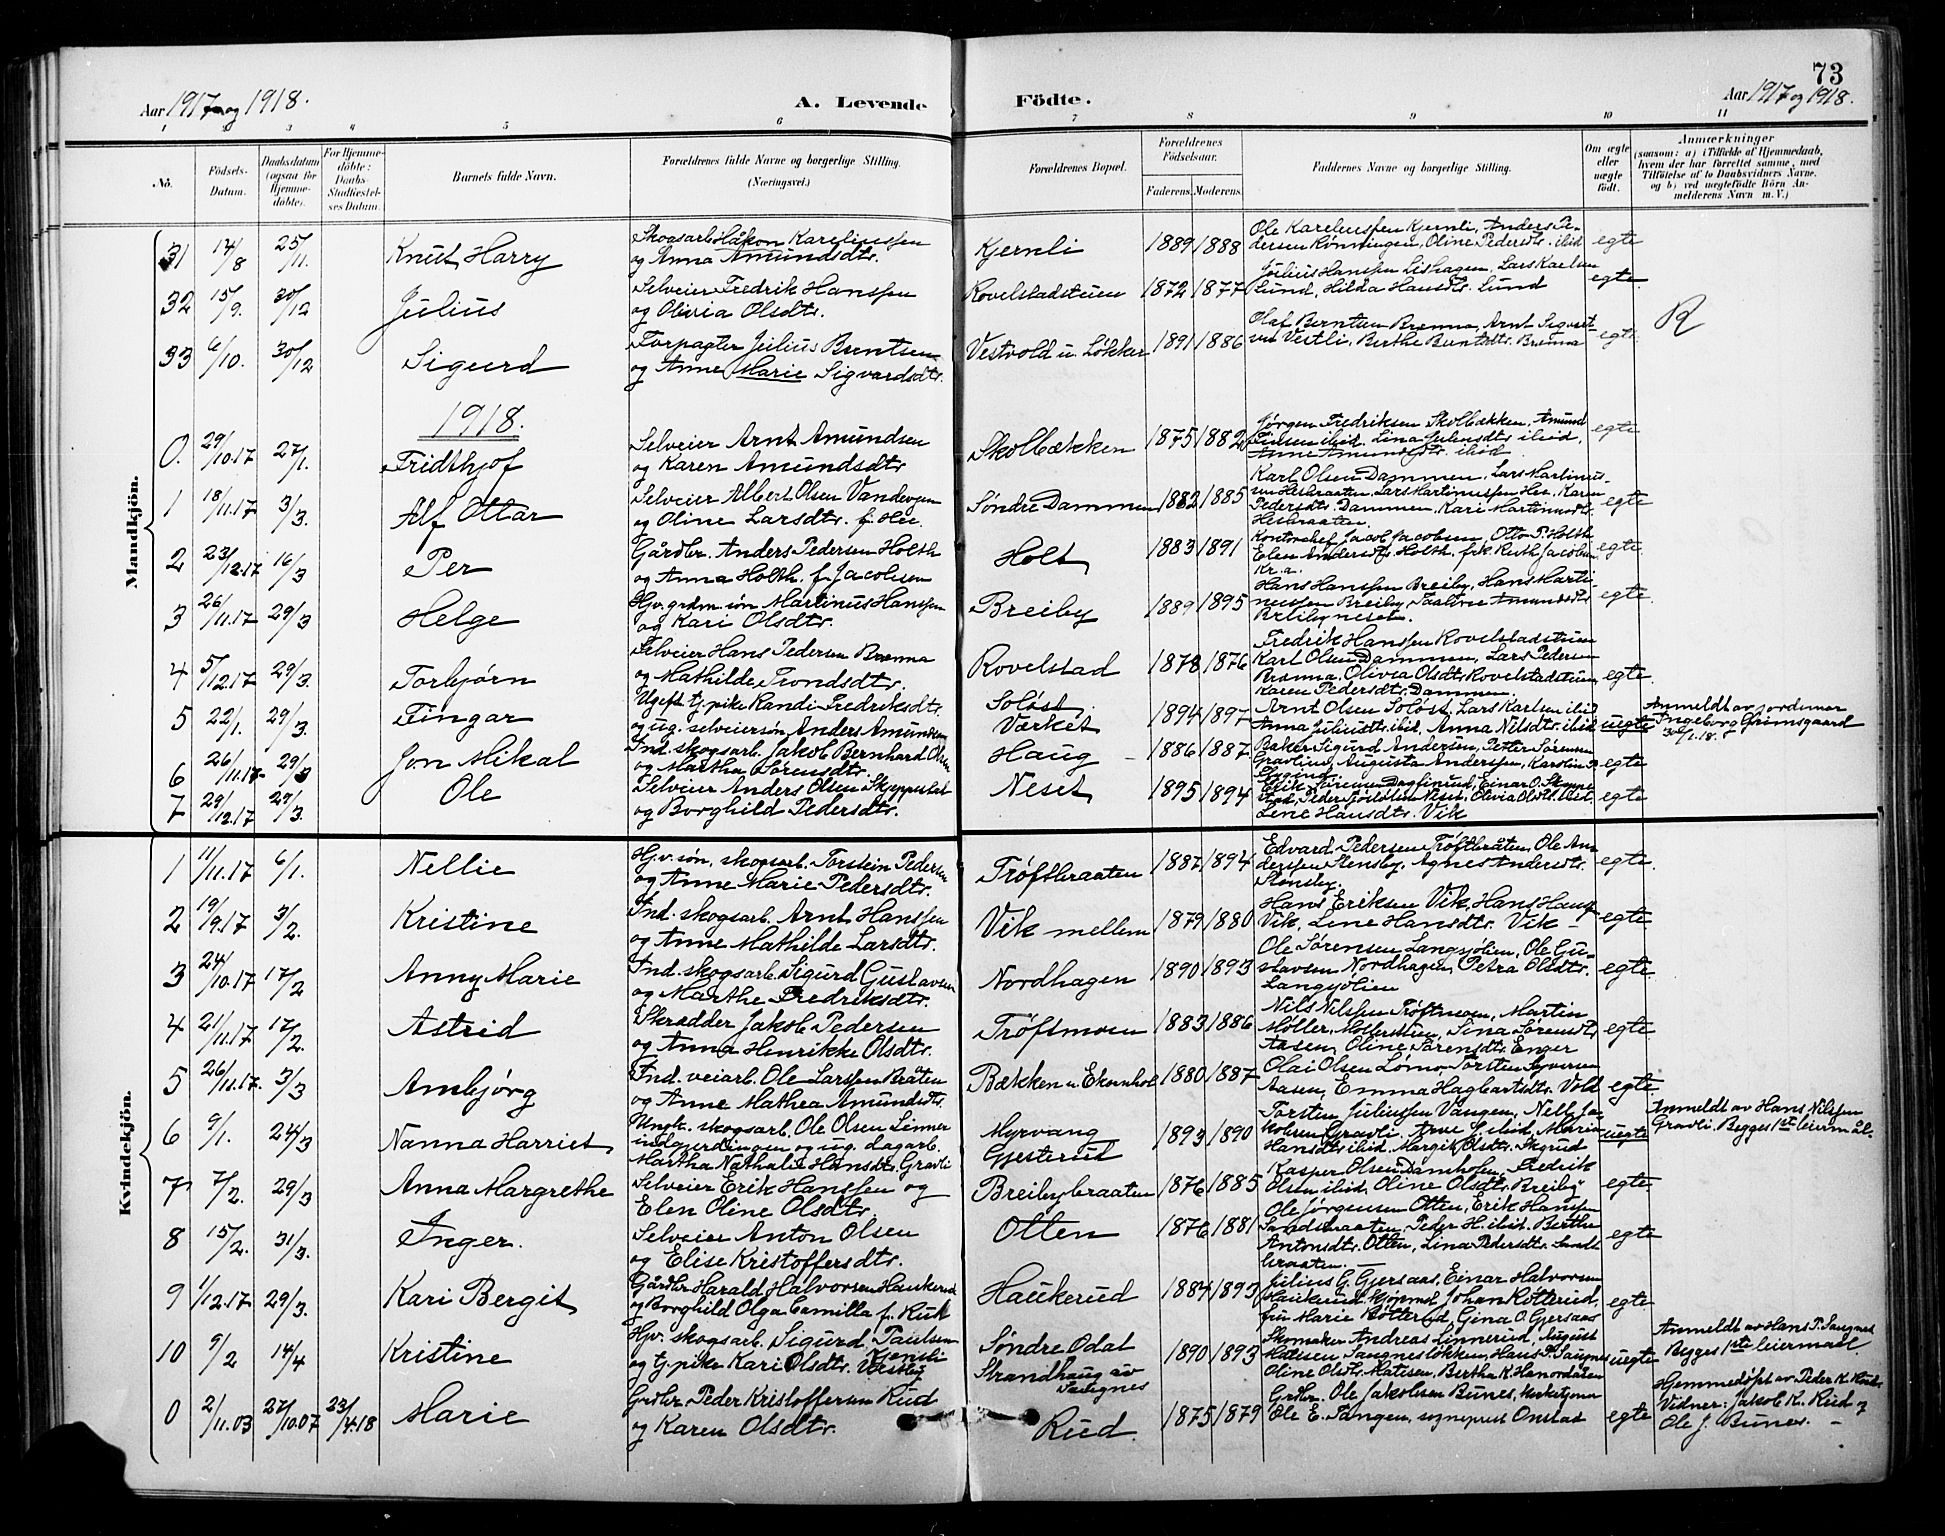 Aar 1917 og 1918.
A. Levende Födte.
73
Aar 1917 og 1918.
1 2 3 4 5 6 7 8 9 10 11
No.
Födsels-Datum.
Daabsdatum (ogsaa for Hjemme-döbte).
For Hjemme-döbte: Daabs Stadfæstel-ses Datum.
Barnets fulde Navn.
Forældrenes fulde Navne og borgerlige Stilling. (Næringsvei.)
Forældrenes Bopæl.
Forældrenes Födselsaar.
Faderens. Moderens.
Faddernes Navne og borgerlige Stilling.
Om ægte eller uægte födt.
Anmærkninger (saasom: a) i Tilfælde af Hjemmedaab, hvem der har forrettet samme, med Tilföielse af to Daabsvidners Navne, og b) ved uægtefödte Börn An-melderens Navn m. V.)
Mandkjön.
31 14/8 25/11. Knut Harry Skogsarb. Håkon Kareliussen og Anna Amundsdtr. Kjernli 1889 1888 Ole Kareliussen Kjernli, Anders Pe-dersen Rønningen, Oline Pedersdtr. ibid egte
32 15/9. 30/12 Julius Selveier Fredrik Hanssen og Olivia Olsdtr. Rovelstadstuen 1872 1877 Julius Hanssen Lishagen, Lars Karlsen Lund, Hilda Hansdtr. Lund egte
33 6/10. 30/12 Sigurd Forpagter Julius Berntsen og Anne Marie Sigvardsdtr. Vestvold u. Løkker 1891 1886 Olaf Berntsen Brenna, Arnt Sigvart- Vestli, Berthe Berntsdtr. Brenna egte R
1918.
0. 29/10.17 27/1. Fridthjof Selveier Arnt Amundsen og Karen Amundsdtr. Skolbækken 1875 1882 Jørgen Fredriksen Skolbækken, Amund ibid, Lina Juliusdtr ibid, Anne Amundsdtr ibid egte
1 18/11.17 3/3. Alf Ottar Selveier Albert Olsen Vandevgen og Oline Larsdtr. f. Hee. Søndre Dammen 1882 1885 Karl Olsen Dammen, Lars Martinus- Heskraaten, Lars Martinussen Hee, Karen Pedersdtr. Dammen, Kari Martinusdtr. Heskraaten. egte
2 23/12.17 16/3 Per Gårdbr. Anders Pedersen Holth og Anna Holth f. Jacobsen Holt 1883 1891 Kontorchef Jacob Jacobsen, Otto P. Holth, Elen Andersdtr. Holth, frk. Ruth Jacobsen Kr.a. egte
3 26/11.17 29/3 Helge Hjv. grdm. søn Martinus Hanssen og Kari Olsdtr. Breiby 1889 1895 Hans Hanssen Breiby, Hans Marti-nussen Breiby, Amundsdtr Breibyneset. egte.
4 5/12.17 29/3. Torbjørn Selveier Hans Pedersen Brenna og Mathilde Trondsdtr. Rovelstad 1878 1876 Fredrik Hanssen Rovelstadstuen Karl Olsen Dammen, Lars Pedersen Brenna, Olivia Olsdtr. Rovelstadstuen, Karen Pedersdtr. Dammen. egte.
5 22/1. 29/3. Fingar Ugift tj.pike Randi Fredriksdtr. og ug. selveiersøn Anders Amundsen Soløst Værket 1894 1897 Arnt Olsen Soløst, Lars Karlsen ibid Anna Juliusdtr. ibid, Anna Nilsdtr. ibid uegte Anmeldt av jordemor Ingeborg Grimsgaard 30/1.18.
6 26/11.17 29/3 Jon Mikal Ind. skogsarb. Jakob Bernhard Olsen og Martha Sørensdtr. Haug 1886 1887 Baker Sigurd Andersen, Petter Sørensen Gravlien, Augusta Anderssen, Karoline egte
7 29/12.17 29/3. Ole Selveier Anders Olsen og Borghild Pedersdtr. Neset 1895 1894 Erik Sørensen Dagfinrud, Einar O. Peder Neset, Olivia Olsdtr. ibid, Lene Hansdtr. Vik egte
Kvindekjön.
1 11/11.17 6/1. Nellie Hjv. søn, skogsarb. Torstein Pedersen og Anne Marie Pedersdtr. Trøftbraaten 1887 1894 Edvard Pedersen Trøftbråten, Ole An-derssen Stensby, Agnes Andersdtr. Stensby. egte.
2 19/9.17 3/2. Kristine Ind. skogsarb. Arnt Hanssen og Anne Mathilde Larsdtr. Vik mellem 1879 1880 Hans Eriksen Vik, Hans Vik, Lene Hansdtr. Vik egte
3 24/10.17 17/2 Anny Marie Ind. skogsarb. Sigurd Gustavsen og Marthe Fredriksdtr. Nordhagen 1890 1893 Ole Sørensen Langsjølien, Ole Gu-stavsen Nordhagen, Petra Olsdtr. Langsjølien egte
4 21/11.17 17/2. Astrid Skrædder Jakob Pedersen og Anna Henrikke Olsdtr. Trøftmoen 1883 1886 Nils Nilssen Trøftmoen, Martin Møller, Sina Sørensdtr Aasen, Oline Sørensdtr. Enger egte
5 26/11.17. 3/3 Ambjørg Ind. veiarb. Ole Larssen Bråten og Anne Mathea Amundsdtr. Bækken u. Ekornhol 1880 1887 Olai Olsen Lømo, Torsten Syversen Aasen, Emma Hagbartsdtr. Vold egte
6 9/1. 24/3 Nanna Harriet Ungk. skogsarb. Ole Olsen Linner- og ug. dagarb. Martha Nathalie Hansdtr. Gravli Myrvang Gjesterud 1893 1890 Torsten Juliussen Vangen, Nels Ja-kobsen Gravli, Arne J. ibid, Maria Hansdtr. ibid, Margit Olsdtr. uegte Anmeldt av Hans Nilssen Gravli. Begges 1ste leiermål.
7 7/2. 29/3 Anna Margrethe Selveier Erik Hanssen og Elen Oline Olsdtr. Breibybraaten 1876 1885 Kasper Olsen Damholen, Fredrik Olsen ibid, Oline Olsdtr. Breiby egte.
8 15/2. 31/3. Inger. Selveier Anton Olsen og Elise Kristoffersdtr. Otten 1876 1881 Ole Jørgensen Otten, Erik Hanssen Sandbraaten, Peder H. ibid. Berthe Antonsdtr. Otten, Lina Pedersdtr. Sand-braaten. egte
9 1/12.17 29/3. Kari Bergit Gårdbr. Harald Halvorsen Haukerud og Borghild Olga Camilla f. Rud Haukerud 1884 1893 Julius G. Gjersaas, Einar Halvorsen Haukerud, kjøpmd. Johan Røtterud, fru Marie Røtterud, Gina O. Gjersaas egte
10 9/2 14/4 Kristine Hjv. skogsarb. Sigurd Paulsen og tj.pike Kari Olsdtr. Søndre Odal Strandhaug av Saugnes 1890 1893 Skomaker Andreas Linnerud, August Saugnesløkken, Hans P. Saugnes, Oline Olsdtr. Bertha K. Hanordåten uegte Anmeldt av Hans P. Saugnes Begges 1ste leiermaal
0 2/11.03 27/10.07 23/4.18 Marie Grdbr. Peder Kristoffersen Rud og Karen Olsdtr. Rud. 1875 1879 Grdbr. Ole Jakobsen Bunes, Ole E. Tangen, sogneprest Onstad egte Hjemmedøpt av Peder K. Rud. Vidner: Jakob K. Rud og Ole J. Bunes.